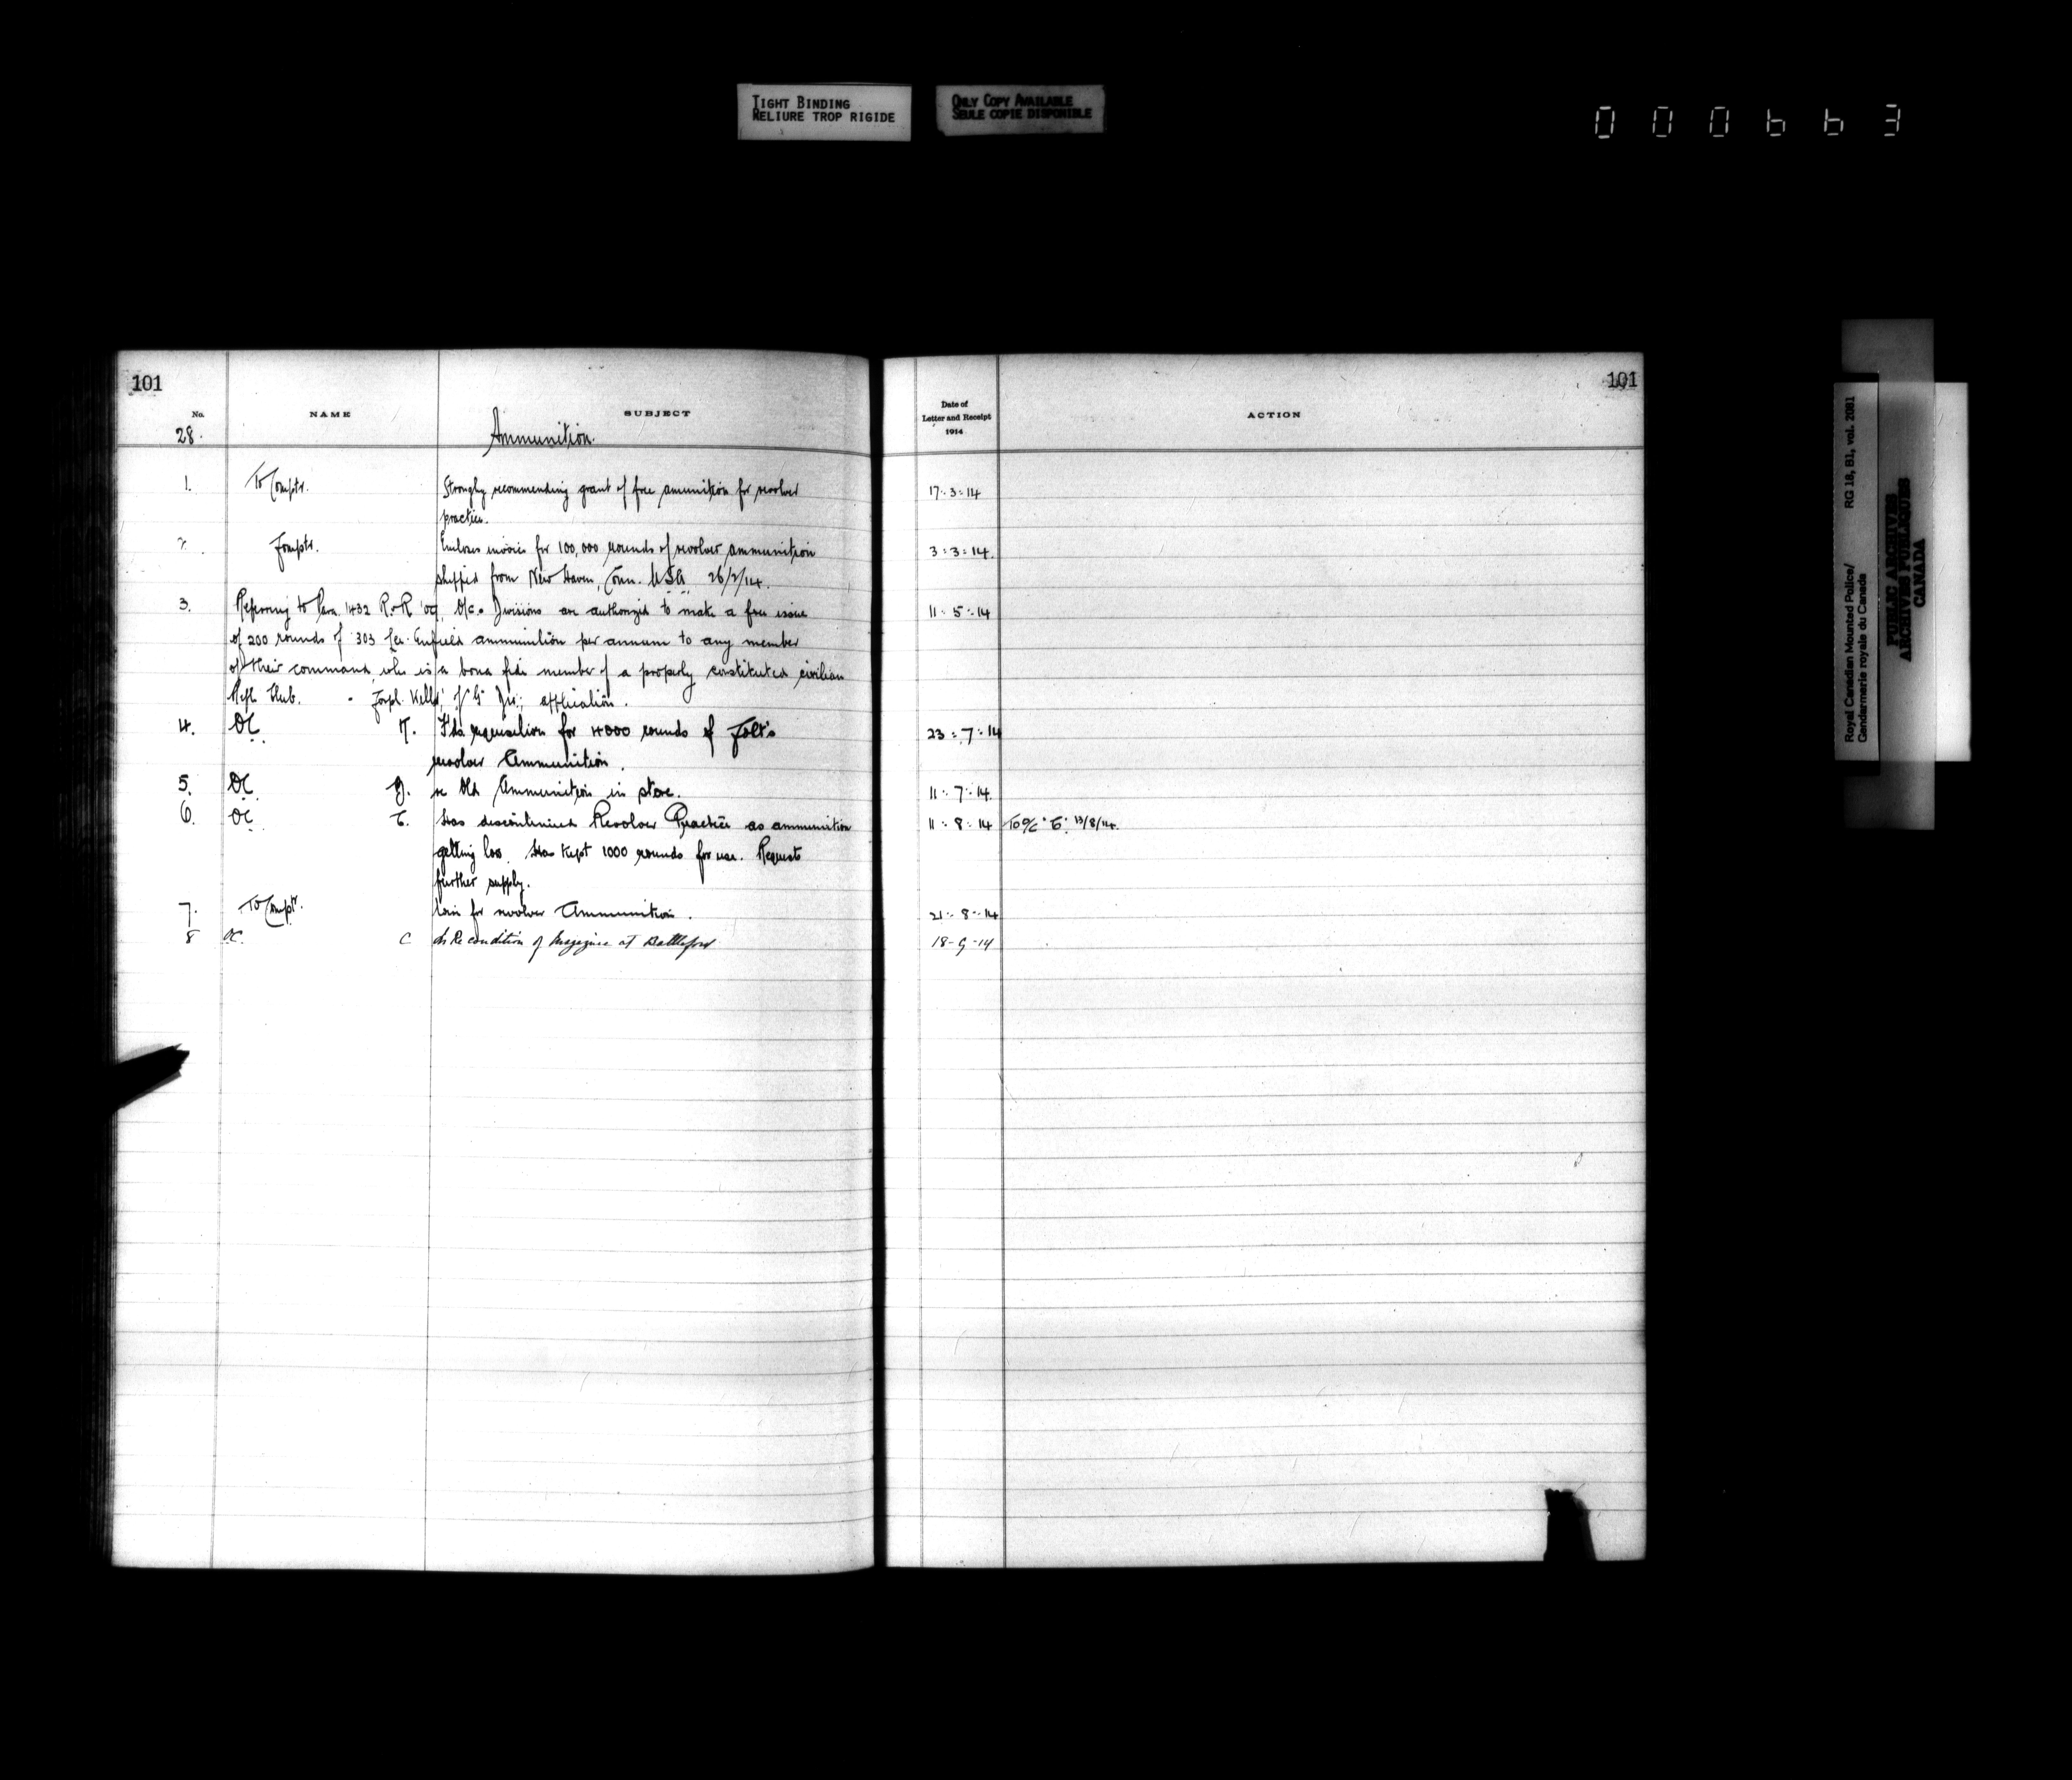 TIGHT BINDING
RELIURE TROP RIGIDE
ONLY COPY AVAILABLE
SEULE COPIE DISPONIBLE
000663
101
101
No. NAME SUBJECT Date of Letter and Receipt 1914 ACTION
28. Ammunition.
1. To Comptr. Strongly recommending grant of free amunition for revolver 17:3:14
practice.
2. Comptr. Encloses invoice for 100,000 rounds of revolver ammunition 3:3:14.
shipped from New Haven, Conn. USA 26/2/14.
3. Referring to Para. 1432 R.&R. '09, O/c.s Divisions are authorized to make a free issue 11:5:14
of 200 rounds of 303 Lee-Enfield ammunition per annum to any member
of their command who is a bona fide member of a properly constituted civilian
Rifle Club. - Corpl. Wells, of "G" Div.; application.
4. OC. N. Fds requisition for 4000 rounds of Colt's 23:7:14
revolver Ammunition.
5. OC. G. re Old Ammunition in store. 11:7:14.
6. OC. E. Has discontinued Revolver Practice as ammunition 11:8:14 To O/C "E". 13/8/14.
getting low. Has kept 1000 rounds for use. Requests
further supply.
7. To Comptr. for revolver Ammunition. 21:8:14
8 OC. C Re condition of Magazine at Battleford 18-9-14
Royal Canadian Mounted Police/
Gendarmerie royale du Canada
RG 18, B1, vol. 2081
PUBLIC ARCHIVES
ARCHIVES PUBLIQUES
CANADA